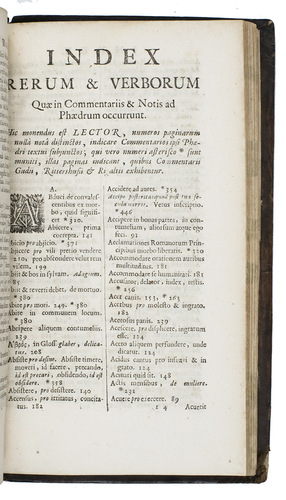 INDEX
RERUM & VERBORUM
Quæ in Commentariis & Notis ad
Phædrum occurrunt.
Hic monendus est LECTOR, numeros paginarum
nulla nota distinctos, indicare Commentarios ipsi Phæ-
dri textui subjunctos; qui vero numeri asterisco * sunt
muniti, illas paginas indicant, quibus Commentarii
Gudii, Rittershusii & Rigaltii exhibentur.
A.
ABduci de convales-
centibus ex mor-
bo, quid signifi-
cet * 310.
Abicere, prima
correpta. 141
Abjicio pro abjicio. * 371
Abjicere pro vili pretio vendere
210, pro abscondere velut rem
vilem, 199
Abiit & bos in
Adagium.
185
Abiit & reverti debet, de mortuo
* 380
Abire pro mori. 249. * 380
Abire in communem locum.
* 380
Abripere aliquem contumeliis.
239
Absiste, in Gloss glaber, delica-
tus. 208
Absiste pro desine. Absiste timere,
moveri, id facere, precando,
id est precari, obsidendo, id est
obsidere. * 358
Absistere, pro desistere. 140
Accensus, pro irritatus, concita-
tus. 182
Accidere ad aures. * 354
Vetus inscriptio.
* 446
Accipere in bonas partes, in
contumeliam, aliorsum atque ego
feci. 92
Acclamationes Romanorum Prin-
cipibus molestæ & liberatis. * 320
Accommodare orationem auribus
multitudinis. 181
Accommodare se humanitati. 181
Accusator, delator, index, testis.
* 256
Acer canis. 153, * 263
Acerbus pro molesto & ingrato.
182
Acerosus panis. 239
Acescere, pro displicere, ingratum
esse. 124
Aceto aliquem perfundere, unde
dicatur. 124
Acidus cantus pro insuavi & in
grato. 124
Acinaci quid sit. 148
Actis mensibus, de muliere.
* 231
Acuere pro exercere. 89
t 4
Acuetit